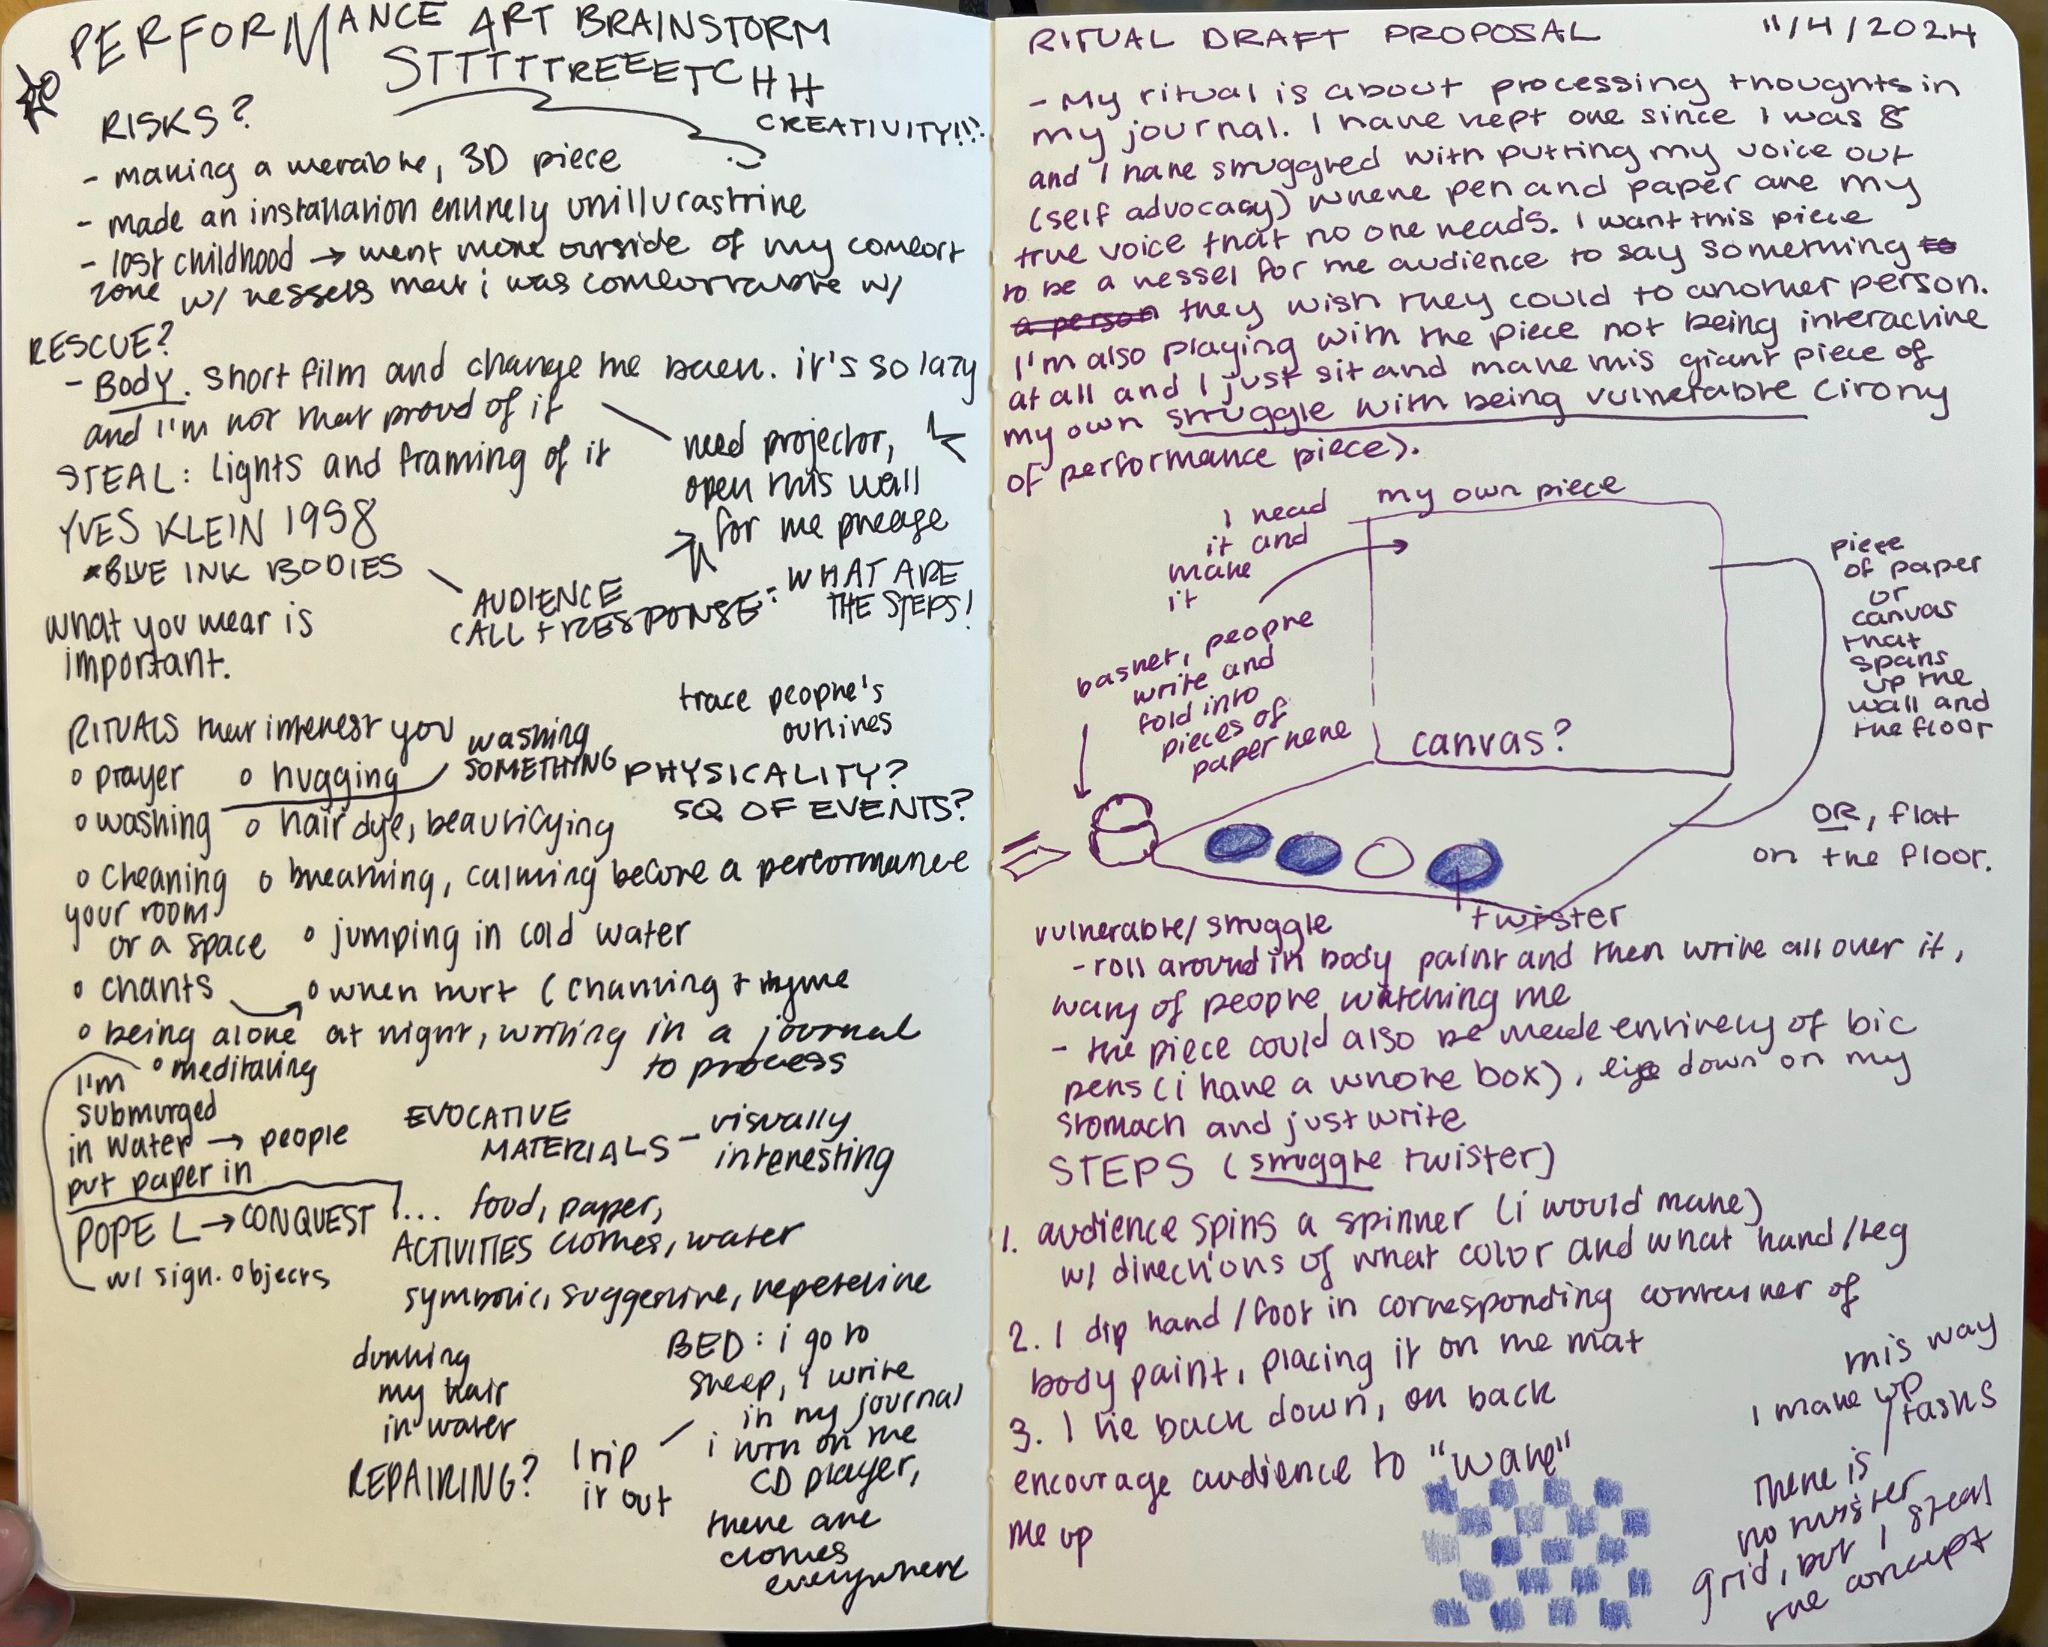 PERFORMANCE ART BRAINSTORM
STTTTTTREEEETCHH
CREATIVITY!!!
RISKS?
- making a werable, 3D piece
- made an installation entirely
- lost childhood → went more outside of my comfort
zone w/ vessels that i was w/
RESCUE?
- BODY. short film and change the baen. it's so lazy
and I'm not that proud of it
STEAL: lights and framing of it
need projector,
open this wall
for the
YVES KLEIN 1958
*BLUE INK BODIES
AUDIENCE
CALL + RESPONSE: WHAT ARE
THE STEPS!
What you wear is
important.
trace people's
outlines
RITUALS that interest you
washing
SOMETHING
° prayer ° hugging
PHYSICALITY?
SQ OF EVENTS?
° washing ° hair dye, beautifying
° cleaning ° breathing, calming before a performance
your room
or a space ° jumping in cold water
° chants ° when hurt (chanting + rhyme
° being alone at night, writing in a journal
to process
° meditating
I'm
submurged
in water → people
put paper in
EVOCATIVE
MATERIALS - visually
interesting
POPE L → CONQUEST
w/ sign. objects
... food, paper,
ACTIVITIES clothes, water
symbolic, suggestive, repetetive
dunking
my hair
in water
REPAIRING?
I rip
it out
BED: i go to
sleep, i write
in my journal
i turn on the
CD player,
there are
clothes
everywhere
RITUAL DRAFT PROPOSAL 11/4/2024
- My ritual is about processing thoughts in
my journal. I have kept one since I was 8
and I have struggled with putting my voice out
(self advocacy) where pen and paper are my
true voice that no one reads. I want this piece
to be a vessel for the audience to say something to
a person they wish they could to another person.
I'm also playing with the piece not being interactive
at all and I just sit and make this giant piece of
my own struggle with being vulnerable (irony
of performance piece).
my own piece
I read
it and
make
it
basket, people
write and
fold into
pieces of
paper here
canvas?
piece
of paper
or
canvas
that
spans
up the
wall and
the floor
OR, flat
on the floor.
twister
vulnerable/struggle
- roll around in body paint and then write all over it,
wary of people watching me
- the piece could also be made entirely of bic
pens (i have a whole box), lie down on my
stomach and just write
STEPS (struggle twister)
1. audience spins a spinner (i would make)
w/ directions of what color and what hand/leg
2. I dip hand/foot in corresponding container of
body paint, placing it on the mat
3. I lie back down, on back
encourage audience to "wake"
me up
this way
I make up
tasks
there is
no twister
grid, but I steal
the concept